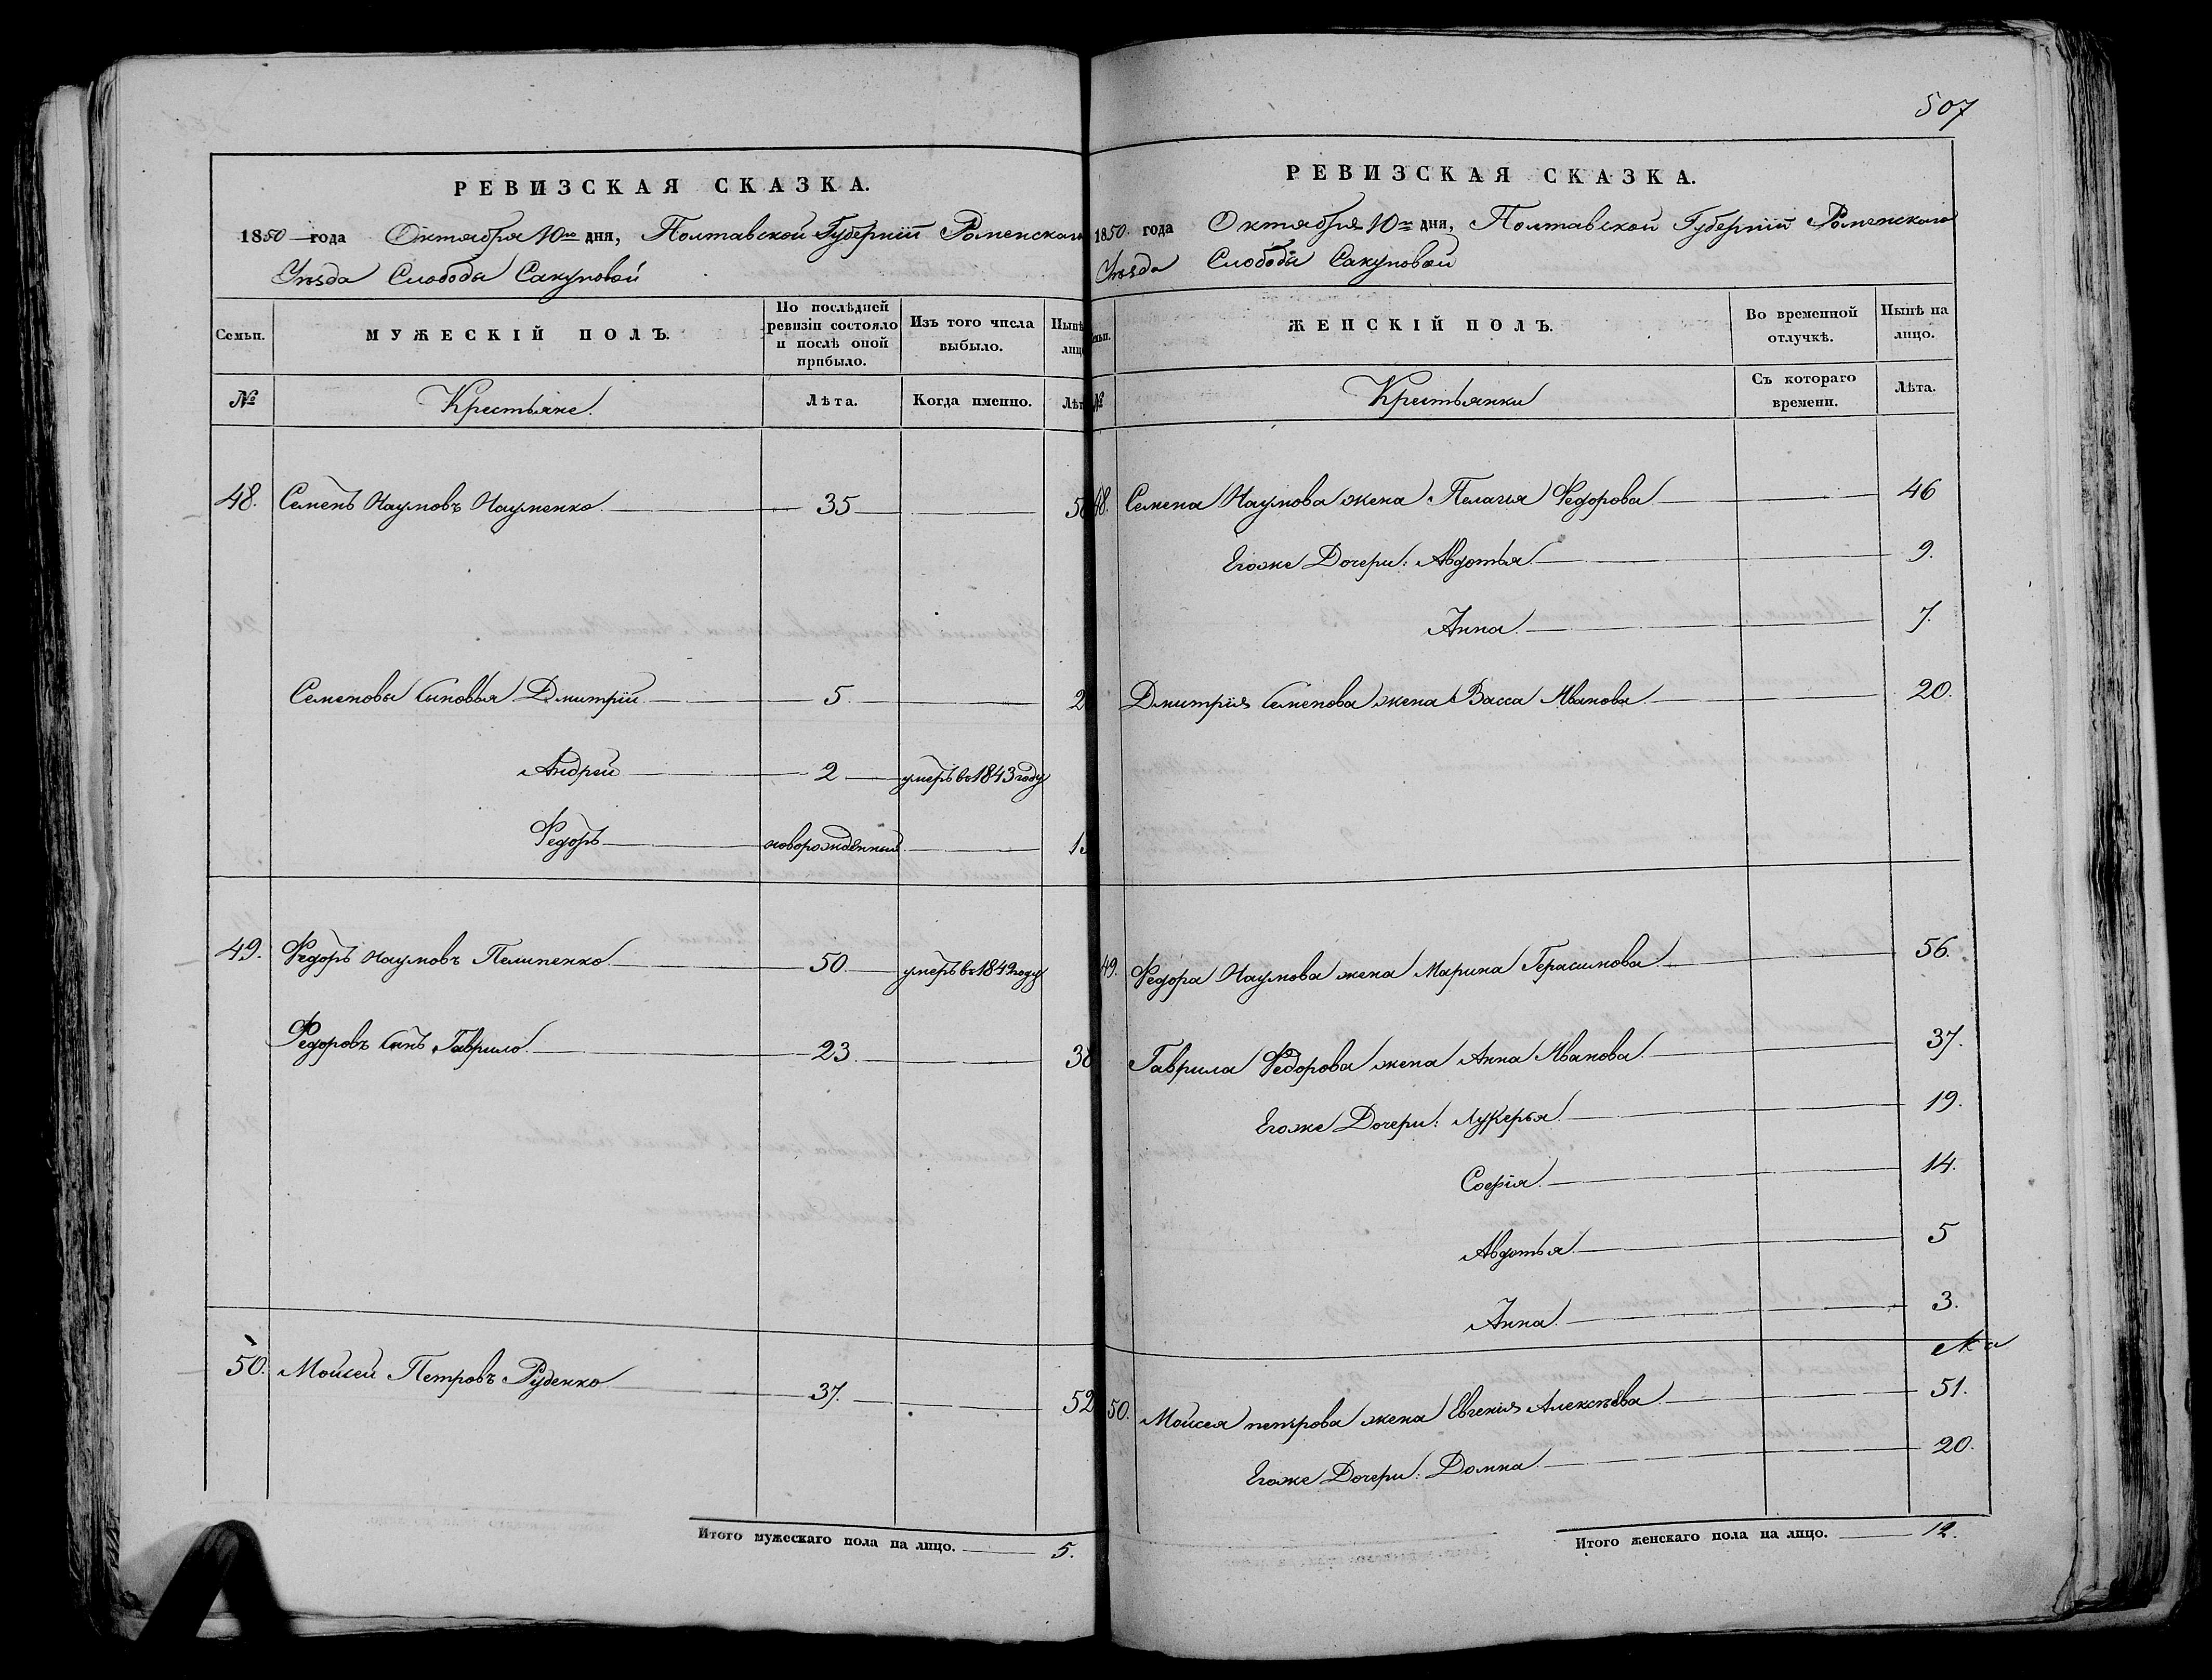 507
РЕВИЗСКАЯ СКАЗКА.
1850 года Октября 10го дня, Полтавской Губерніи Роменскаго
Уѣзда Слободы Сакуновой
Семьи. МУЖЕСКІЙ ПОЛЪ. По послѣдней ревизіи состояло и послѣ оной прибыло. Изъ того числа выбыло. Нынѣ лицо
№ Крестьяне. Лѣта. Когда именно. Лѣт
48. Семенъ Наумовъ Науменко. 35 50
Семеновы Сыновья Дмитрій 5. 2
Андрей 2 умеръ въ 1843 году
Федоръ новорожденный 15
49. Федоръ Наумовъ Пелипенко 50. умеръ въ 1849 году
Федоровъ Сынъ Гаврило. 23. 38
50. Мойсей Петровъ Руденко 37. 52
Итого мужескаго пола на лицо. 5.
РЕВИЗСКАЯ СКАЗКА.
1850. года Октября 10го дня, Полтавской Губерніи Роменскаго
Уѣзда Слободы Сакуновой
ЖЕНСКІЙ ПОЛЪ. Во временной отлучкѣ. Нынѣ на лицо.
№ Крестьянки Съ котораго времени. Лѣта.
48. Семена Наумова жена Пелагія Федорова 46
Егоже Дочери: Авдотья 9.
Анна. 7.
Дмитрія Семенова жена Васса Иванова 20.
49. Федора Наумова жена Марина Герасимова 56.
Гаврила Федорова жена Анна Иванова. 37.
Егоже Дочери: Лукерья. 19.
Софія. 14.
Авдотья. 5
Анна. 3.
50. Мойсея петрова жена Евгенія Алексѣева 51.
Егоже Дочери: Домна. 20.
Итого женскаго пола на лицо. 12.